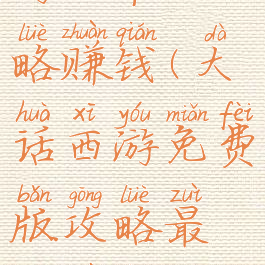 lüè zhuàn qián dà
略赚钱(大
huà xī yóu miǎn fèi
话西游免费
bǎn gōng lüè zuì
版攻略最